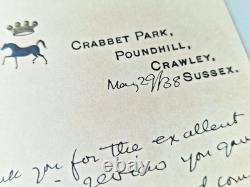 CRABBET PARK,
POUNDHILL,
CRAWLEY,
May 29/38 SUSSEX.
you for the excellent
you gave